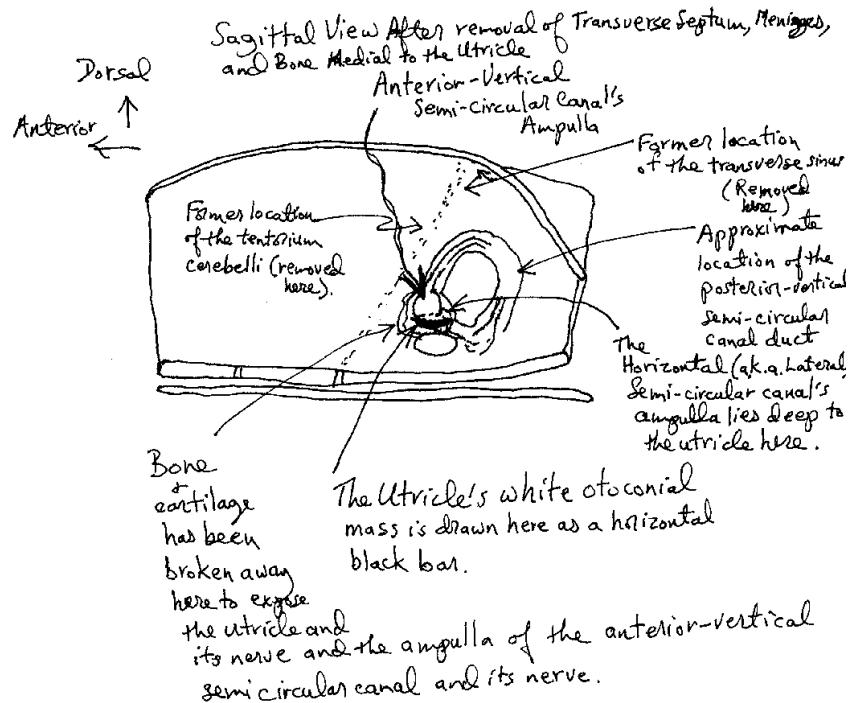 Sagittal View After removal of Transverse Septum, Meninges,
and Bone Medial to the Utricle
Dorsal
Anterior
Anterior-Vertical
Semi-circular Canal's
Ampulla
Former location
of the transverse sinus
(Removed
here)
Former location
of the tentorium
cerebelli (removed
here).
Approximate
location of the
posterior-vertical
semi-circular
canal duct
The
Horizontal (a.k.a. Lateral)
Semi-circular canal's
ampulla lies deep to
the utricle here.
Bone
+
cartilage
has been
broken away
here to expose
the utricle and
its nerve and the ampulla of the anterior-vertical
semicircular canal and its nerve.
The Utricle's white otoconial
mass is drawn here as a horizontal
black bar.